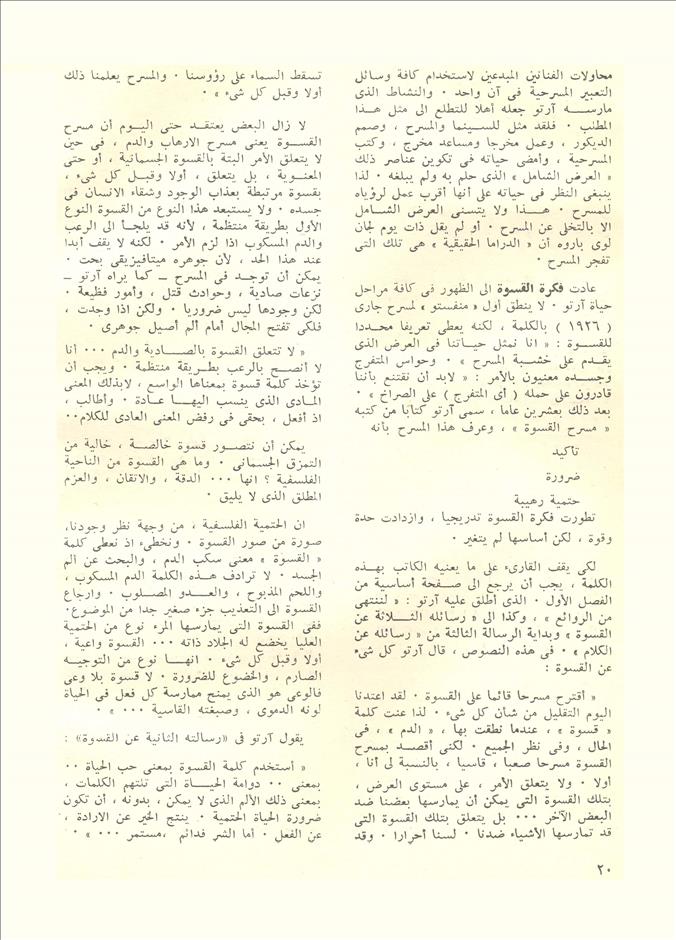 محاولات الفنانين المبدعين لاستخدام كافة وسائل
التعبير المسرحية فى آن واحد ٠ والنشاط الذى
مارسه آرتو جعله أهلا للتطلع الى مثل هذا
المطلب ٠ فلقد مثل للسينما والمسرح ، وصمم
الديكور ، وعمل مخرجا ومساعد مخرج ، وكتب
المسرحية ، وأمضى حياته فى تكوين عناصر ذلك
« العرض الشامل » الذى حلم به ولم يبلغه ٠ لذا
ينبغى النظر فى حياته على أنها أقرب عمل لرؤياه
للمسرح ٠ هذا ولا يتسنى العرض الشامل
الا بالتخلى عن المسرح ٠ أو لم يقل ذات يوم لجان
لوى باروه أن « الدراما الحقيقية » هى تلك التى
تفجر المسرح ٠
عادت فكرة القسوة الى الظهور فى كافة مراحل
حياة آرتو ٠ لا ينطق أول « منفستو » لمسرح جارى
( ١٩٢٦ ) بالكلمة ، لكنه يعطى تعريفا محددا
للقسوة : « اننا نمثل حياتنا فى العرض الذى
يقدم على خشبة المسرح » ٠ وحواس المتفرج
وجسده معنيون بالأمر : « لابد أن نقتنع بأننا
قادرون على حمله ( أى المتفرج ) على الصراخ » ٠
بعد ذلك بعشرين عاما ، سمى آرتو كتابا من كتبه
« مسرح القسوة » ، وعرف هذا المسرح بأنه
تأكيد
ضرورة
حتمية رهيبة
تطورت فكرة القسوة تدريجيا ، وازدادت حدة
وقوة ، لكن أساسها لم يتغير ٠
لكى يقف القارىء على ما يعنيه الكاتب بهذه
الكلمة ، يجب أن يرجع الى صفحة أساسية من
الفصل الأول ٠ الذى أطلق عليه آرتو : « لننتهى
من الروائع » ، وكذا الى « رسائله الثلاثة عن
القسوة » وبداية الرسالة الثالثة من « رسائله عن
الكلام » ٠ فى هذه النصوص ، قال آرتو كل شىء
عن القسوة :
« أقترح مسرحا قائما على القسوة ٠ لقد اعتدنا
اليوم التقليل من شأن كل شىء ٠ لذا عنت كلمة
« قسوة » ، عندما نطقت بها ، « الدم » ، فى
الحال ، وفى نظر الجميع ٠ لكنى أقصد بمسرح
القسوة مسرحا صعبا ، قاسيا ، بالنسبة لى أنا ،
أولا ٠ ولا يتعلق الأمر ، على مستوى العرض ،
بتلك القسوة التى يمكن أن يمارسها بعضنا ضد
البعض الآخر ٠٠٠ بل يتعلق بتلك القسوة التى
قد تمارسها الأشياء ضدنا ٠ لسنا أحرارا ٠ وقد
تسقط السماء على رؤوسنا ٠ والمسرح يعلمنا ذلك
أولا وقبل كل شىء » ٠
لا زال البعض يعتقد حتى اليوم أن مسرح
القسوة يعنى مسرح الارهاب والدم ، فى حين
لا يتعلق الأمر البتة بالقسوة الجسمانية ، أو حتى
المعنوية ، بل يتعلق ، أولا وقبل كل شىء ،
بقسوة مرتبطة بعذاب الوجود وشقاء الانسان فى
جسده ٠ ولا يستبعد هذا النوع من القسوة النوع
الأول بطريقة منتظمة ، لأنه قد يلجأ الى الرعب
والدم المسكوب اذا لزم الأمر ٠ لكنه لا يقف أبدا
عند هذا الحد ، لأن جوهره ميتافيزيقى بحت ٠
يمكن أن توجد فى المسرح ــ كما يراه آرتو ــ
نزعات صادية ، وحوادث قتل ، وأمور فظيعة ٠
لكن وجودها ليس ضروريا ٠ ولكن اذا وجدت ،
فلكى تفتح المجال أمام ألم أصيل جوهرى ٠
« لا تتعلق القسوة بالصادية والدم ٠٠٠ أنا
لا أنصح بالرعب بطريقة منتظمة ٠ ويجب أن
تؤخذ كلمة قسوة بمعناها الواسع ، لابذلك المعنى
المادى الذى ينسب اليها عادة ٠ وأطالب ،
اذ أفعل ، بحقى فى رفض المعنى العادى للكلام٠٠
يمكن أن نتصور قسوة خالصة ، خالية من
التمزق الجسمانى ٠ وما هى القسوة من الناحية
الفلسفية ؟ انها ٠٠٠ الدقة ، والاتقان ، والعزم
المطلق الذى لا يليق ٠
ان الحتمية الفلسفية ، من وجهة نظر وجودنا،
صورة من صور القسوة ٠ ونخطىء اذ نعطى كلمة
« القسوة » معنى سكب الدم ، والبحث عن ألم
الجسد ٠ لا ترادف هذه الكلمة الدم المسكوب ،
واللحم المذبوح ، والعدو المصلوب ٠ وارجاع
القسوة الى التعذيب جزء صغير جدا من الموضوع٠
ففى القسوة التى يمارسها المرء نوع من الحتمية
العليا يخضع له الجلاد ذاته ٠٠٠ القسوة واعية ،
أولا وقبل كل شىء ٠ انها نوع من التوجيه
الصارم ، والخضوع للضرورة ٠ لا قسوة بلا وعى
فالوعى هو الذى يمنح ممارسة كل فعل فى الحياة
لونه الدموى ، وصبغته القاسية ٠٠٠ » ٠
يقول آرتو فى «رسالته الثانية عن القسوة» :
« أستخدم كلمة القسوة بمعنى حب الحياة ٠٠
بمعنى ٠٠ دوامة الحياة التى تلتهم الكلمات ،
بمعنى ذلك الألم الذى لا يمكن ، بدونه ، أن تكون
ضرورة الحياة الحتمية ٠ ينتج الخير عن الارادة ،
عن الفعل ٠ أما الشر فدائم ،مستمر ٠٠٠ » ٠
٢٠